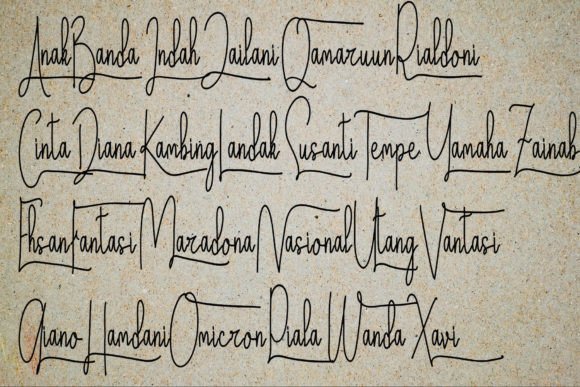 Anak Banda Indah Jailani Qamaruun Rialdoni
Cinta Diana Kambing Landak Susanti Tempe Yamaha Zainab
Ehsan Fantasi Maradona Nasional Utang Vantasi
Giano Hamdani Omicron Piala Wanda Xavi